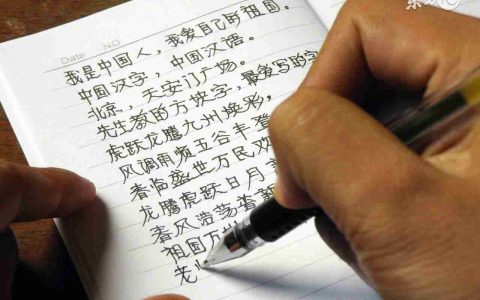 Date NO
我是中国人，我爱自己的祖国。
中国汉字，中国汉语。
北京，天安门广场。
先生教的方块字，最爱写的字
虎跃龙腾九州焕彩，
风调雨顺五谷丰登
春临盛世万民欢
龙腾虎跃日月
春风浩荡着
祖国万
老